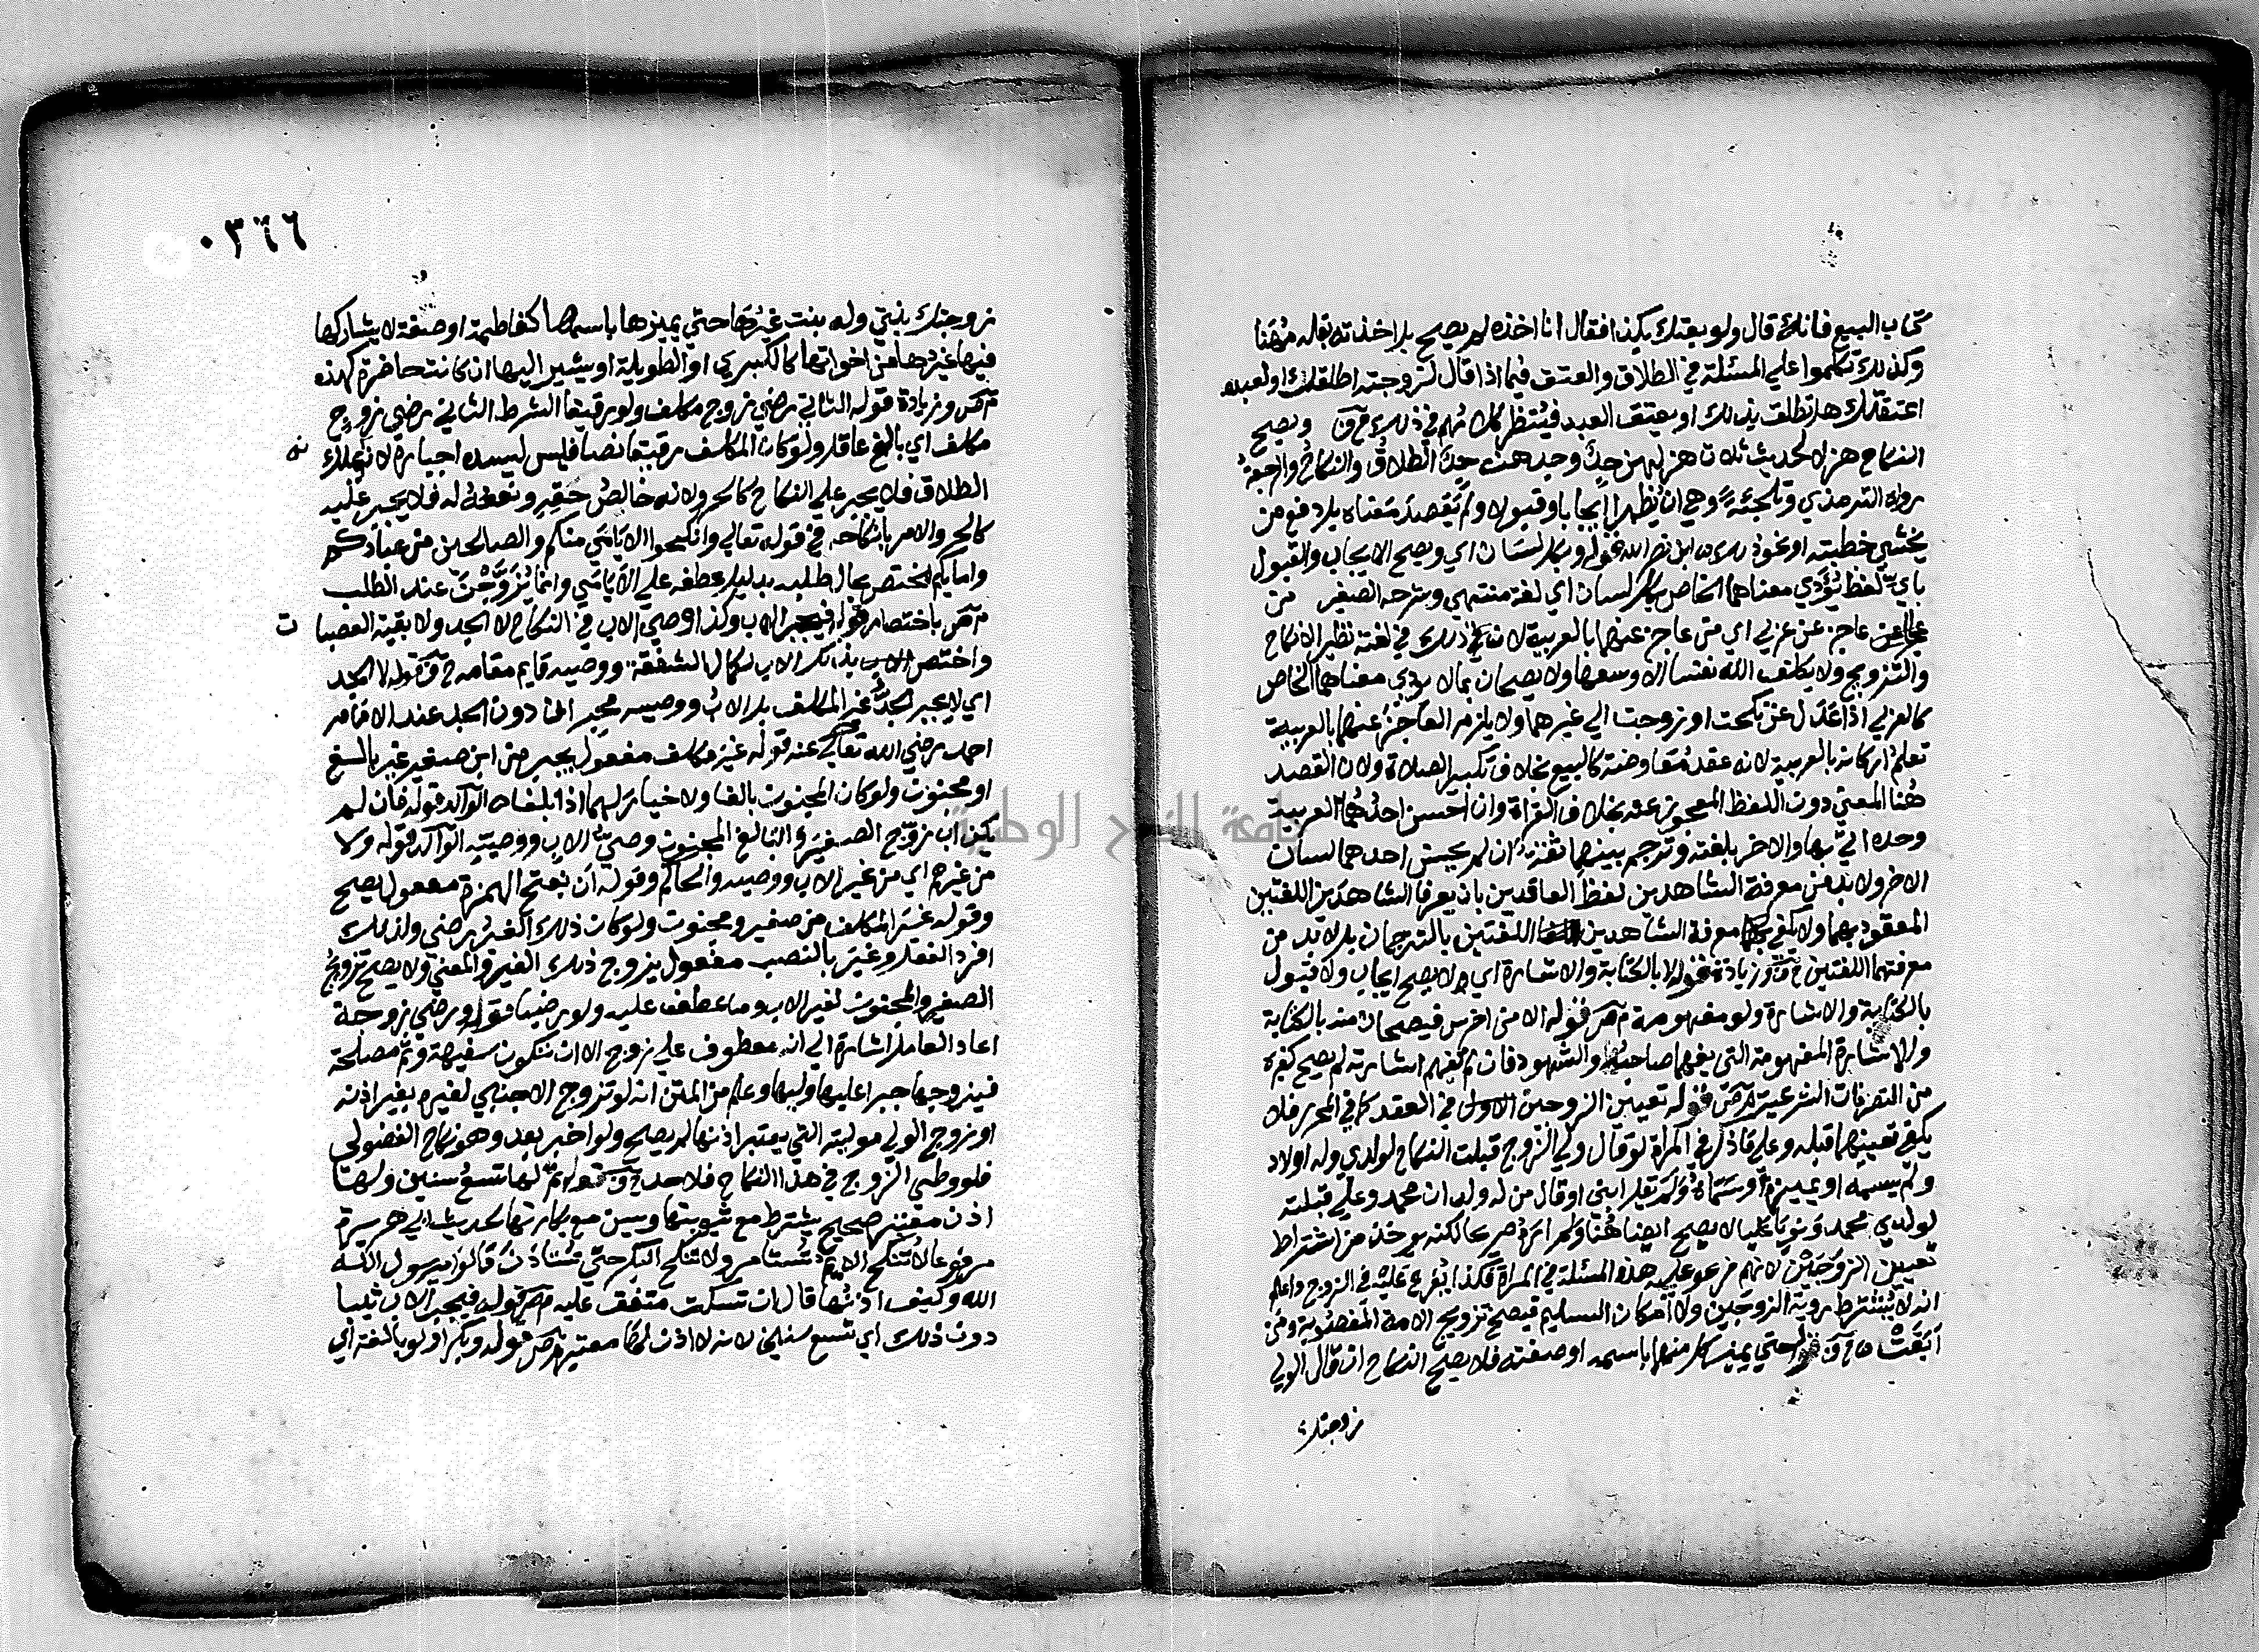 كتاب البيع فانه قال ولو بعتك بكذا فقال انا اخذه لم يصح بل اخذته بقله هنا
وكذلك تكلموا علي المسئلة في الطلاق والعتق فيما اذا قال لزوجته اطلقك او لعبده
اعتقك هل تطلق بذلك او يعتق العبد فينتظر كلامهم في ذلك م ق ويصح
النكاح هزلا لحديث ثلاث هزلهن جد وجدهن جد الطلاق والنكاح والرجعة
رواه الترمذي وتلجئة وهي ان يظهرا ايجابا وقبولا ولم يقصد معناه بل دفع من
يخشي خطبته او نحو ذلك ابن نصر الله قوله وبكل لسان اي ويصح الايجاب والقبول
باي لفظ يؤدي معناهما الخاص بكل لسان اي لغة منتهي وشرحه الصغير من
عاجز عن عربي اي من عاجز عنهما بالعربية لان ذلك في لغته نظير الانكاح
والتزويج ولا يكلف الله نفسا الا وسعها ولا يصحان بما لا يؤدي معناهما الخاص
كالعربي اذا عدل عن نكحت او زوجت الي غيرهما ولا يلزم العاجز عنهما بالعربية
تعلم اركانه بالعربية لانه عقد معاوضة كالبيع بخلاف تكبير الصلاة ولان القصد
هنا المعني دون اللفظ المعجوز عنه بخلاف القراة وان احسن احدهما العربية
وحده اتي بها والاخر بلغته وترجم بينهما ثقة ان لم يحسن احدهما لسان
الاخر ولا بد من معرفة الشاهدين لفظ العاقدين بان يعرفا الشاهدين اللغتين
المعقود بهما ولا يكفي معرفة الشاهدين اللغتين بالترجمان بل لا بد من
معرفتهما اللغتين م ق وزيادة قوله لا بالكتابة والاشارة اي ولا يصح ايجاب ولا قبول
بالكتابة والاشارة ولو مفهومة م ص قوله الا من اخرس فيصحان منه بالكتابة
والاشارة المفهومة التي يفهمها صاحبه والشهود فان لم تفهم اشارته لم يصح كغيره
من التصرفات الشرعية م ص قوله تعيين الزوجين الاول في العقد كما في المحرر فلا
يكفي تعيينهما قبله وعلي ما ذكر في المراة لو قال ولي الزوج قبلت النكاح لولدي وله اولاد
ولم يسمه او يميزه او سماه ولم يقل ابني او قال من له ولدان محمد وعلي قبلته
لولدي محمد ونويا عليا لا يصح ايضا هنا ولم اره صريحا لكنه يوخذ من اشتراط
تعيين الزوجين لانهم فرعو عليه هذه المسئلة في المراة فكذا يفرع عليه في الزوج واعلم
انه لا يشترط روية الزوجين ولا امكان التسليم فيصح تزويج الامة المغصوبة ومن
ابقت م ق قوله حتي يميز كل منهما باسمه او صفته فلا يصح النكاح ان قال الولي
زوجتك
٠٣٦٦
زوجتك بنتي وله بنت غيرها حتي يميزها باسمها كفاطمة او صفة لا يشاركها
فيها غيرها من اخواتها كالكبري او الطويلة او يشير اليها ان كانت حاضرة كهذه
م ص وزيادة قوله الثاني رضي زوج مكلف ولو رقيقا الشرط الثاني رضي زوج
مكلف اي بالغ عاقل ولو كان المكلف رقيقا نصا فليس لسيده اجباره لانه يملك
الطلاق فلا يجبر علي النكاح كالحر ولانه خالص حقه ونفعه له فلا يجبر عليه
كالحر والامر بانكاحه في قوله تعالي وانكحوا الايامي منكم والصالحين من عبادكم
وامايكم مختص بحال طلبه بدليل عطفه علي الايامي وانما يزوجن عند الطلب
م ص باختصار قوله فيجبر الاب وكذا وصي الاب في النكاح لا الجد ولا بقية العصبات
واختص الاب بذلك الاب لكمال الشفقة ووصيه قايم مقامه م ق قوله لا الجد
اي لا يجبر الجد غير المكلف بل الاب ووصيه مجبر انما دون الجد عند الامام
احمد رضي الله تعالي عنه قوله غير مكلف مفعول يجبر من ابن صغير غير بالغ
او مجنون ولو كان المجنون بالغا ولا خيار لهما اذا بلغا م الوالد قوله فان لم
يكن اب زوج الصغير والبالغ المجنون وصي الاب ووصيته الوالد قوله ولا
من غيرهم اي من غير الاب ووصيه والحاكم وقوله ان بفتح الهمزة مفعول يصح
وقوله غير المكلف من صغير ومجنون ولو كان ذلك الغير رضي ولذلك
افرد الفعل وغير بالنصب مفعول يزوج ذلك الغير والمعني ولا يصح تزويج
الصغير والمجنون لغير الاب وما عطف عليه ولو رضيا قوله ورضي زوجة
اعاد العامل اشارة الي انه معطوف علي زوج الا ان تكون سفيهة وثم مصلحة
فيزوجها جبرا عليها وليها وعلم من المتن انه لو تزوج الاجنبي لغيره بغير اذنه
او زوج الولي موليته التي يعتبر اذنها لم يصح ولو اخبر بعد وهو نكاح الفضولي
فلو وطي الزوج في هذا النكاح فلا حد م ق قوله ثم لها تسع سنين ولها
اذن معتبر صحيح يشترط مع ثيوبتها ويسن مع بكارتها لحديث ابي هريرة
مرفوعا لا تنكح الايم حتي تستامر ولا تنكح البكر حتي تستاذن قالوا يا رسول الله
الله وكيف اذنها قال ان تسكت متفق عليه م ص قوله فيجبر الاب ثيبا
دون ذلك اي تسع سنين لانه لا اذن لها معتبر م ص قوله وبكرا ولو بالغة اي